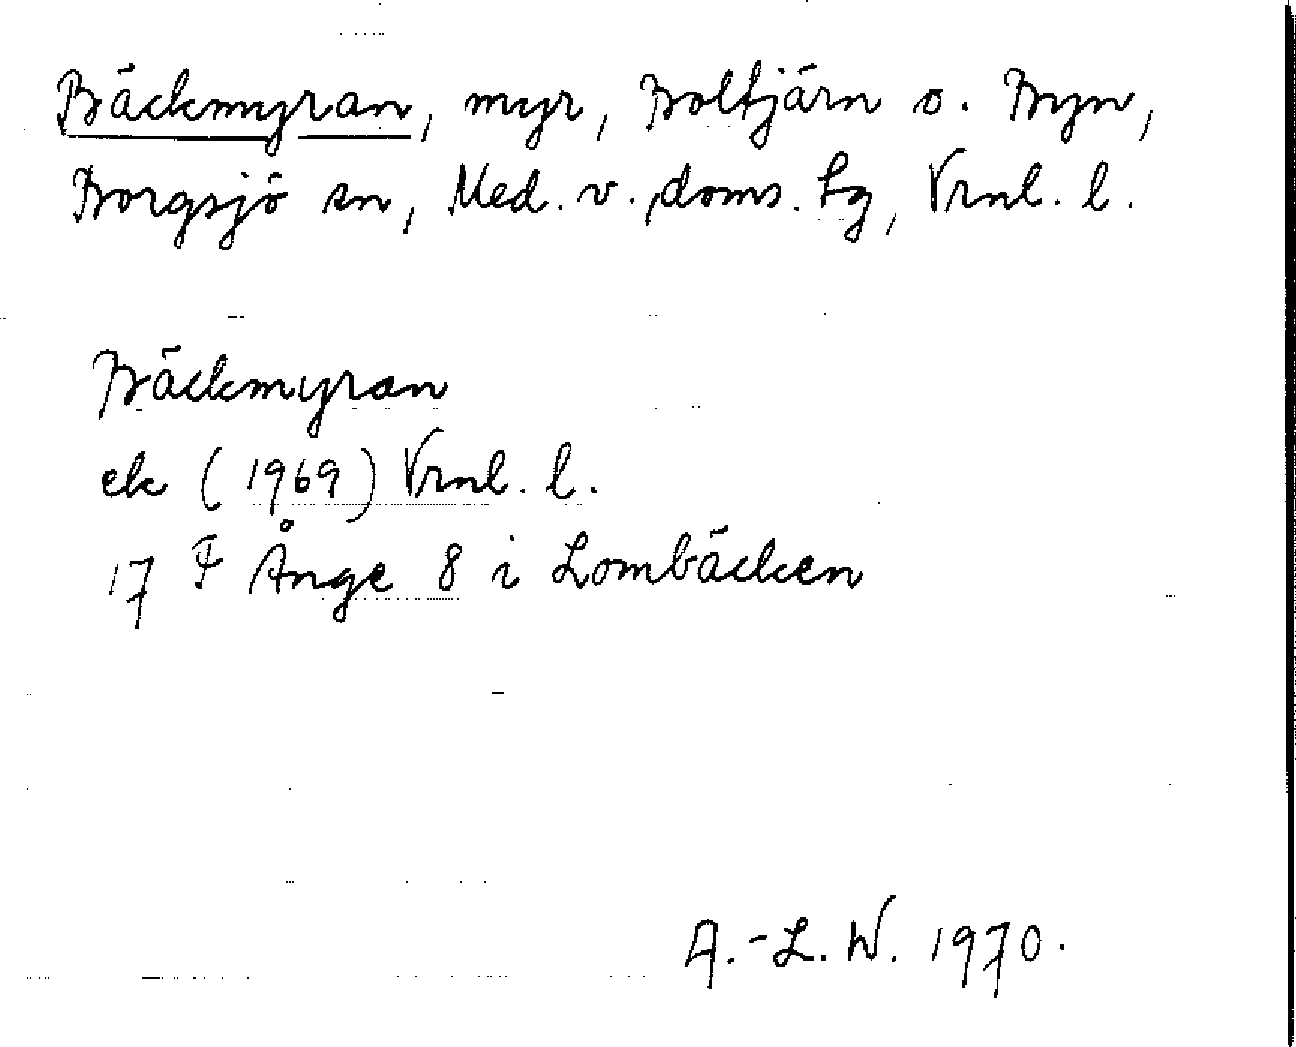 Bäckmyran, myr, Boltjärn o. Byn,
Borgsjö sn, Med. v. doms. tg, Vrnl. l.
Bäckmyran
ek (1969) Vrnl. l.
17 F Ånge 8 i Lombäcken
A.-L. W. 1970.